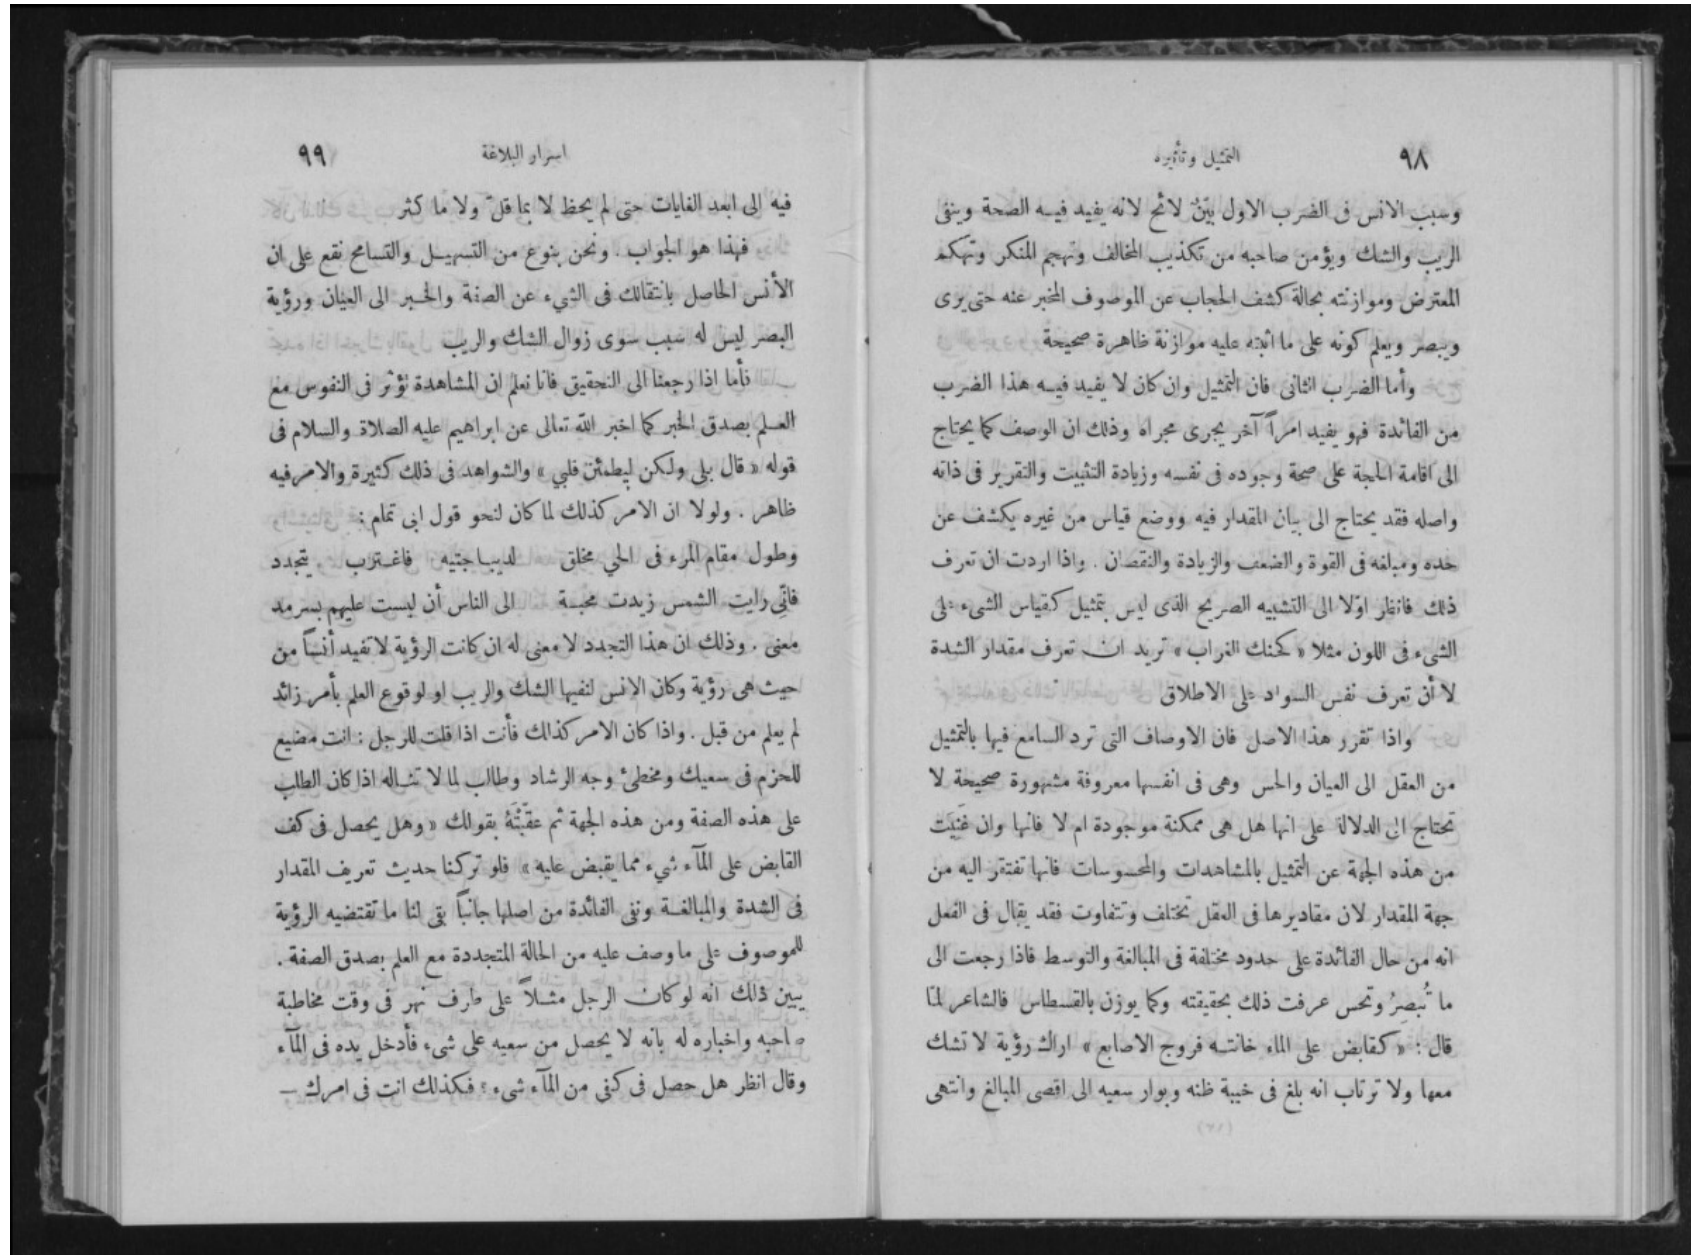 ٩٨
التمثيل وتأثيره
وسبب الانس فى الضرب الاول بيّنٌ لائح لانه يفيد فيه الصحة وينفى
الريب والشك ويؤمن صاحبه من تكذيب المخالف وتهجم المنكر وتهكم
المعترض وموازنته بحالة كشف الحجاب عن الموصوف المخبر عنه حتى يرى
ويبصر ويعلم كونه على ما اثبته عليه موازنة ظاهرة صحيحة
وأما الضرب الثانى فان التمثيل وان كان لا يفيد فيه هذا الضرب
من الفائدة فهو يفيد امراً آخر يجرى مجراه وذلك ان الوصف كما يحتاج
الى اقامة الحجة على صحة وجوده فى نفسه وزيادة التثبيت والتقرير فى ذاته
واصله فقد يحتاج الى بيان المقدار فيه ووضع قياس من غيره يكشف عن
حده ومبلغه فى القوة والضعف والزيادة والنقصان . واذا اردت ان تعرف
ذلك فانظر اولا الى التشبيه الصريح الذى ليس بتمثيل كقياس الشىء على
الشىء فى اللون مثلا « كحنك الغراب » تريد ان تعرف مقدار الشدة
لا أن تعرف نفس السواد على الاطلاق
واذا تقرر هذا الاصل فان الاوصاف التى ترد السامع فيها بالتمثيل
من العقل الى العيان والحس وهى فى انفسها معروفة مشهورة صحيحة لا
تحتاج الى الدلالة على انها هل هى ممكنة موجودة ام لا فانها وان غَنِيَت
من هذه الجهة عن التمثيل بالمشاهدات والمحسوسات فانها تفتقر اليه من
جهة المقدار لان مقاديرها فى العقل تختلف وتتفاوت فقد يقال فى الفعل
انه من حال الفائدة على حدود مختلفة فى المبالغة والتوسط فاذا رجعت الى
ما تُبصِرُ وتحس عرفت ذلك بحقيقته وكما يوزن بالقسطاس فالشاعر لما
قال : « كقابض على الماء خانته فروج الاصابع » اراك رؤية لا تشك
معها ولا ترتاب انه بلغ فى خيبة ظنه وبوار سعيه الى اقصى المبالغ وانتهى
اسرار البلاغة
٩٩
فيه الى ابعد الغايات حتى لم يحظ لا بما قلّ ولا ما كثر
فهذا هو الجواب . ونحن بنوع من التسهيل والتسامح نقع على ان
الأنس الحاصل بانتقالك فى الشىء عن الصفة والخبر الى العيان ورؤية
البصر ليس له سبب سوى زوال الشك والريب
فأما اذا رجعنا الى التحقيق فانا نعلم ان المشاهدة تؤثر فى النفوس مع
العلم بصدق الخبر كما اخبر الله تعالى عن ابراهيم عليه الصلاة والسلام فى
قوله « قال بلى ولكن ليطمئن قلبي » والشواهد فى ذلك كثيرة والامر فيه
ظاهر . ولولا ان الامر كذلك لما كان لنحو قول ابى تمام :
وطول مقام المرء فى الحي مخلق لديباجتيه فاغترب يتجدد
فانّى رايت الشمس زيدت محبة الى الناس أن ليست عليهم بسرمد
معنى . وذلك ان هذا التجدد لا معنى له ان كانت الرؤية لا تفيد أنساً من
حيث هى رؤية وكان الانس لنفيها الشك والريب او لوقوع العلم بأمر زائد
لم يعلم من قبل . واذا كان الامر كذلك فأنت اذا قلت للرجل : انت مضيع
للحزم فى سعيك ومخطئ وجه الرشاد وطالب لما لا تناله اذا كان الطلب
على هذه الصفة ومن هذه الجهة ثم عقّبْتَهُ بقولك « وهل يحصل فى كف
القابض على المآء شىء مما يقبض عليه » فلو تركنا حديث تعريف المقدار
فى الشدة والمبالغة ونفى الفائدة من اصلها جانباً بقى لنا ما تقتضيه الرؤية
للموصوف على ما وصف عليه من الحالة المتجددة مع العلم بصدق الصفة .
يبين ذلك انه لو كان الرجل مثلاً على طرف نهر فى وقت مخاطبة
صاحبه واخباره له بانه لا يحصل من سعيه على شىء فأدخل يده فى المآء
وقال انظر هل حصل فى كفى من المآء شىء ؟ فكذلك انت فى امرك –